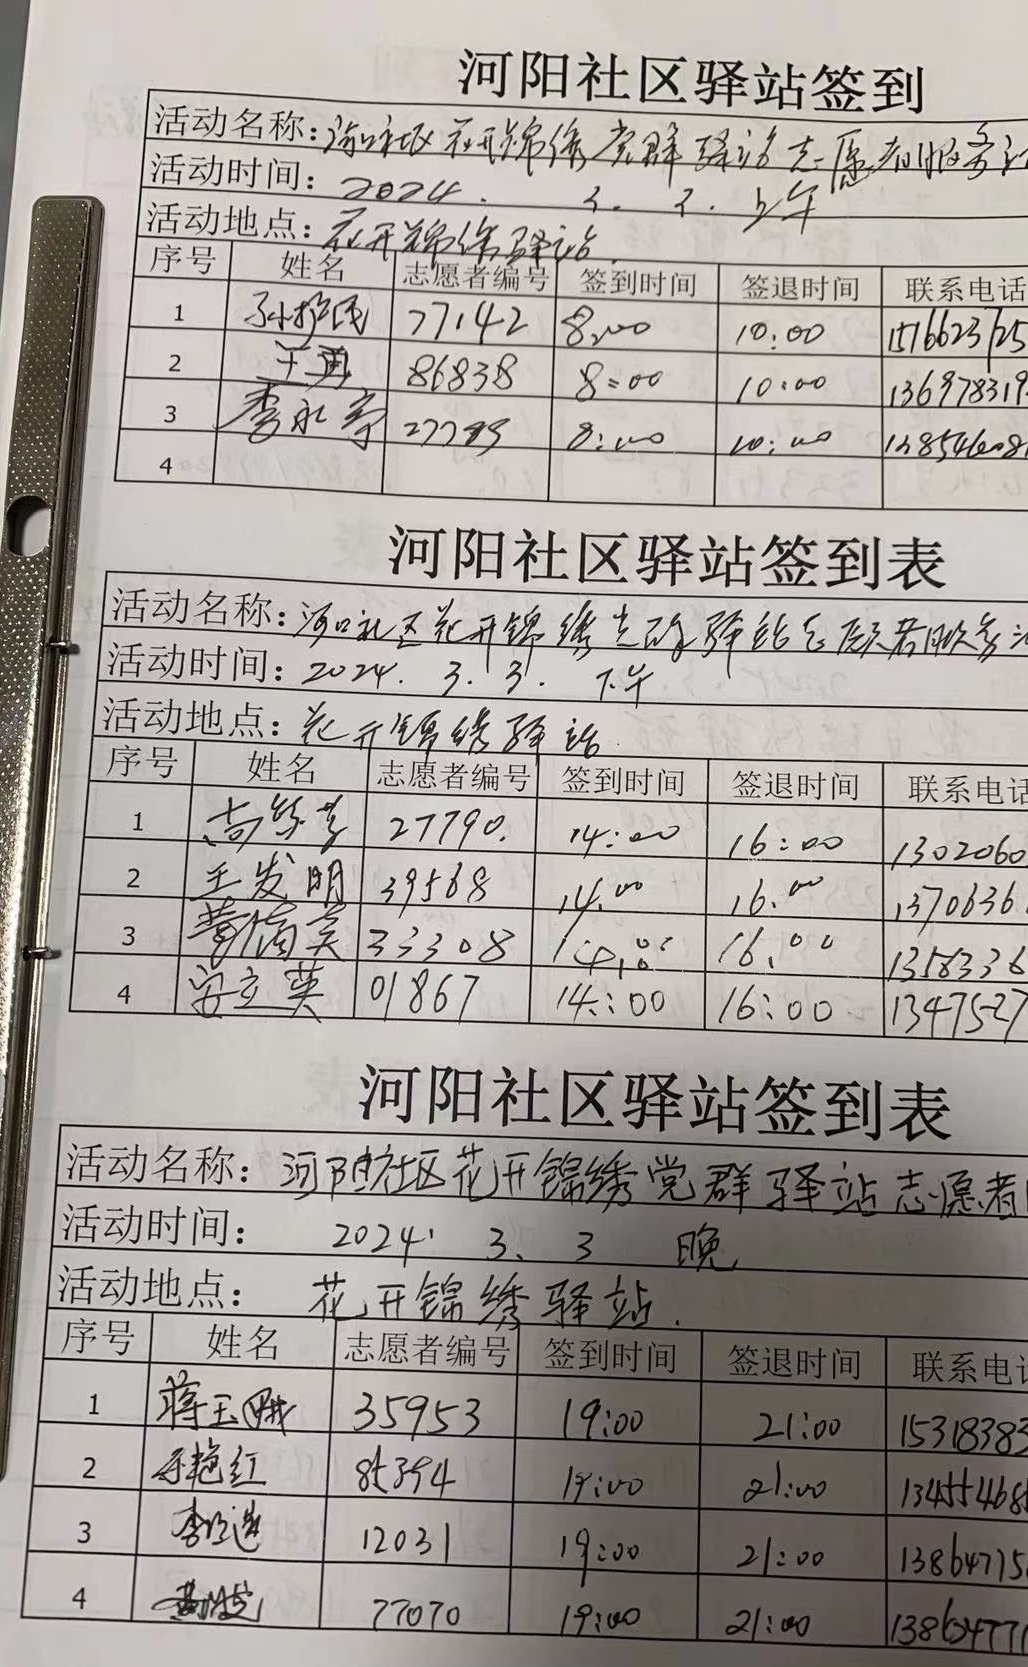 河阳社区驿站签到
活动名称：社区花开锦绣党群驿站志愿者服务
活动时间：2024. 3. 3. 上午
活动地点：花开锦绣驿站
序号 姓名 志愿者编号 签到时间 签退时间 联系电话
1 77142 8:00 10:00
2 86838 8:00 10:00 136978319
3 李永亭 8:00 10:00
4
河阳社区驿站签到表
活动名称：河口社区花开锦绣党群驿站志愿者服务
活动时间：2024. 3. 3. 下午
活动地点：花开锦绣驿站
序号 姓名 志愿者编号 签到时间 签退时间 联系电话
1 27790. 14:00 16:00 1302060
2 王发明 39568 14:00 16:00 1370636
3 33308 14:00 16:00 1358336
4 安立英 01867 14:00 16:00 1347527
河阳社区驿站签到表
活动名称：河阳社区花开锦绣党群驿站志愿者
活动时间：2024. 3. 3 晚
活动地点：花开锦绣驿站.
序号 姓名 志愿者编号 签到时间 签退时间 联系电话
1 蒋玉 35953 19:00 21:00 15318383
2 艳红 85394 19:00 21:00
3 12031 19:00 21:00 13864715
4 77070 19:00 21:00